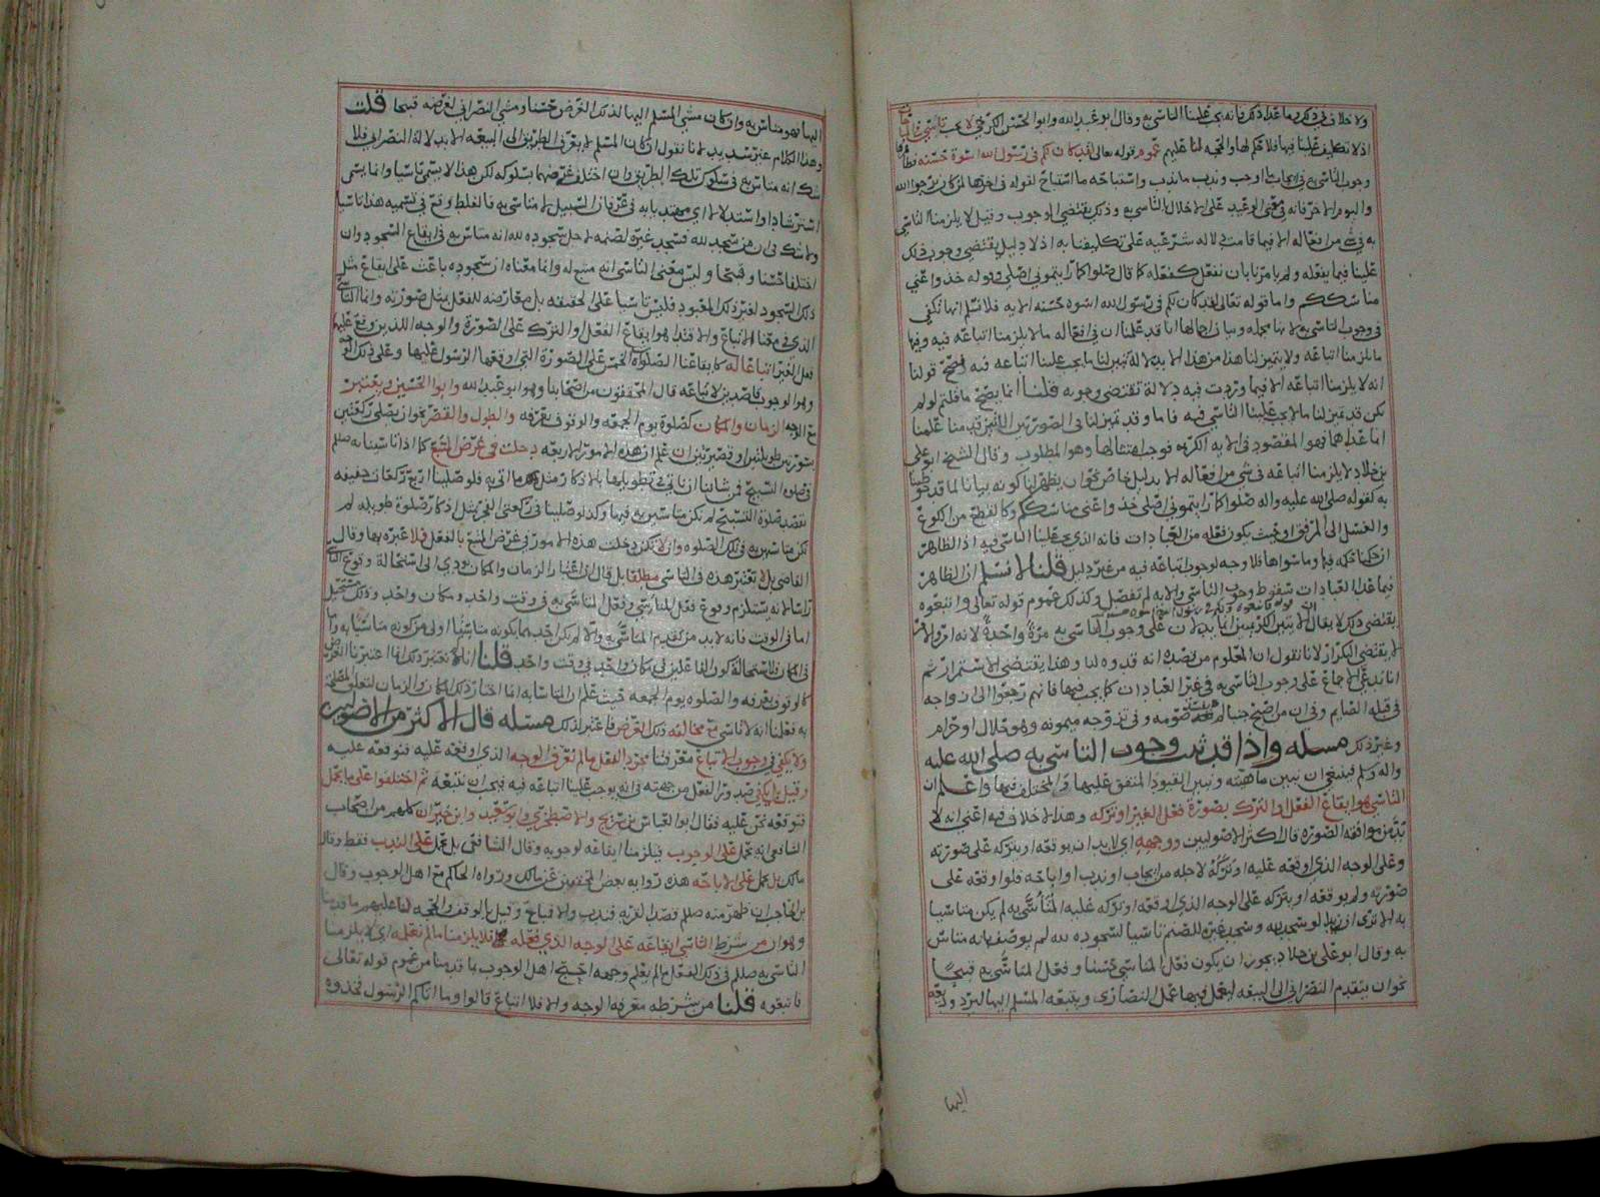 ولا خلاف في ذلك وما عدا ذلك فانه يجب علينا التاسي به وقال ابو عبد الله وابو الحسن الكرخي لا يجب
اذ لا تكليف علينا فيها فلا حكم لها والحجه لنا عليهم عموم قوله تعالى لقد كان لكم في رسول الله اسوة حسنه
وجوب التاسي به في ايجاب ما اوجب وندب ما ندب واستباحه ما استباح لقوله في اخرها لمن كان يرجوا الله
واليوم الاخر فانه في معنى الوعيد على الاخلال بالتاسي به وذلك يقتضي الوجوب وقيل لا يلزمنا التاسي
به في شي من افعاله الا فيما قامت دلاله شرعيه على تكليفنا به اذ لا دليل يقتضي وجوب ذلك
علينا فيما يفعله ولم يامرنا بان نفعل كفعله كما قال صلوا كما رايتموني اصلي وقوله خذوا عني
مناسككم واما قوله تعالى لقد كان لكم في رسول الله اسوه حسنه الايه فلا نسلم انها تكفي
في وجوب التاسي به لانها مجمله وبيان اجمالها انا قد علمنا ان في افعاله ما لا يلزمنا اتباعه فيه وفيها
ما يلزمنا اتباعه ولا يتميز لنا هذا من هذا الا بدلالة تبين لنا ما يجب علينا اتباعه فيه فصح قولنا
انه لا يلزمنا اتباعه الا فيما وردت فيه دلالة تقتضي وجوبه قلنا انما يصح ما قلتم لو لم
يكن قد تميز لنا ما لا يجب علينا التاسي فيه فاما وقد تميز لنا في الصورتين اللتين قدمنا علمنا
ان ما عداها فهو المقصود في الايه الكريمه فوجب امتثالها وهو المطلوب وقال الشيخ ابو علي
بن خلاد لا يلزمنا اتباعه في شي من افعاله الا بدليل خاص نحو ان يظهر لنا كونه بيانا لما قد خوطبنا
به كقوله صلى الله عليه واله صلوا كما رايتموني اصلي خذوا عني مناسككم وكالقطع من الكوع
والغسل الى المرفق او بحيث يكون فعله من العبادات فانه الذي يجب علينا التاسي فيه اذ الظاهر
ان حكمنا كحكمه فيها وما سواها فلا وجه لوجوب اتباعه فيه من غير دليل قلنا لا نسلم ان الظاهر
فيما عدا العبادات سقوط وجوب التاسي والايه لم تفصل وكذلك عموم قوله تعالى واتبعوه
يقتضي ذلك لا يقال
لا يقتضي التكرار لانا نقول ان المعلوم من قصده انه قدوه لنا وهذا يقتضي الاستمرار ثم
انا ندعي الاجماع على وجوب التاسي به في غير العبادات كما يجب فيها فانهم رجعوا الى ازواجه
في قبله الصايم وفي ان من اصبح جنبا لم يفسد صومه وفي تزوجه ميمونه وهو حلال او حرام
وغير ذلك مسله واذا قد ثبت وجوب التاسي به صلى الله عليه
واله وسلم فينبغي ان نبين ماهيته ونبين القيود المتفق عليها والمختلف فيها واعلم ان
التاسي هو ايقاع الفعل او الترك بصورة فعل الغير او تركه وهذا لا خلاف فيه اعني انه لا
بد من موافقه الصوره قال اكثر الاصوليين ووجهه اي لا بد ان يوقعه او يتركه على صورته
وعلى الوجه الذي اوقعه عليه او تركه لاجله من ايجاب او ندب او اباحه فلو اوقعه على
صورته ولم يوقعه او يتركه على الوجه الذي اوقعه او تركه عليه المتاسى به لم يكن متاسيا
به الا ترى ان زيدا لو سجد لله وسجد غيره للصنم تاسيا لسجوده لله لم يوصف بانه متاس
به وقال ابو علي بن خلاد يجوز ان يكون فعل المتاسي حسنا وفعل المتاسى به قبيحا
نحو ان يتقدم النصراني الى البيعه ليعمل فيها عمل النصارى ويتبعه المسلم اليها ليرد وديعه
اليها
اليها فهو متاس به وان كان مشي المسلم اليها لذلك الغرض حسنا ومشي النصراني لغرضه قبيحا قلت
وهذا الكلام غير سديد لانا نقول ان كان المسلم لم يعرف الطريق الى البيعه الا بدلالة النصراني فلا
شك انه متاس به في سلوك تلك الطريق وان اختلف غرضهما بسلوكه لكن هذا لا يسمى تاسيا وانما يسمى
استرشادا واستدلالا اي مهتد بابه في عرفان السبيل لا متاس به فالغلط وقع في تسميه هذا تاسيا
ولا شك في ان من سجد لله فسجد غيره لصنمه لاجل سجوده لله انه متاس به في ايقاع السجود وان
اختلفا حسنا وقبحا وليس معنى التاسي انه متبع له وانما معناه ان سجوده باعث على ايقاع مثل
ذلك السجود لغير ذلك المعبود فليس تاسيا على الحقيقه بل معارضه للفعل بمثل صورته وانما التاسي
الذي في معنى الاتباع والاقتدا هو ايقاع الفعل او الترك على الصورة والوجه اللذين وقع عليهما
فعل الغير اتباعا له كما يقاعنا الصلوة الخمس على الصورة التي اوقعها الرسول عليها وعلى ذلك الوجه
وهو الوجوب قاصدين لاتباعه قال المحققون من اصحابنا وهو ابو عبد الله وابو الحسين ويعتبر
مع الوجه الزمان والمكان كصلوة يوم الجمعه والوقوف بعرفه والطول والقصر نحو ان يصلي ركعتين
بسورتين طويلتين او قصيرتين ان علم ان هذه الامور الاربعه دخلت في غرض المتبع كما اذا تاسينا به صلعم
في صلوة التسبيح فمن شاننا ان ناتي في تطويلها بالاذكار مثل ما اتى به فلو صلينا اربع ركعات خفيفه
نقصد صلوة التسبيح لم نكن متاسين به فيها وكذا لو صلينا في ركعتي الفجر مثل اذكار صلوة طويله لم
نكن متاسين به في تلك الصلوه وان لم تكن دخلت هذه الامور في غرض المتبع بالفعل فلا عبره بها وقال
القاضي بل لا تعتبر هذه في التاسي مطلقا بل قال ان اعتبار الزمان والمكان يودي الى استحالة وقوع التاسي
راسا لانه يستلزم وقوع فعل المتاسي وفعل المتاسى به في وقت واحد ومكان واحد وذلك مستحيل
اما في الوقت فانه لا بد من تقديم المتاسى به والا لم يكن احدهما بكونه متاسيا اولى من كونه متاسيا به واما
في المكان فلاستحالة كون الفاعلين في مكان واحد في وقت واحد قلنا انا لا نعتبر ذلك انما اعتبرنا العرف
كالوقوف بعرفه والصلوه يوم الجمعه حيث علم ان المتاسا به انما اختار ذلك المكان والزمان لتعلق المصلحة
به فعلنا انه لا تاسي مع مخالفه ذلك الغرض فاعتبر ذلك مسله قال الاكثر من الاصوليين
ولا يكفي في وجوب الاتباع معرفتنا مجرد الفعل ما لم نعرف الوجه الذي اوقعه عليه فنوقعه عليه
وقيل بل يكفي صدور الفعل من جهته في انه يوجب علينا اتباعه فيه فيجب ان نتبعه ثم اختلفوا على ما يحمل
فنوقعه نحن عليه فقال ابو العباس بن سريج والاصطخري وابو سعيد وابن خيران كلهم من اصحاب
الشافعي انه يحمل على الوجوب فيلزمنا ايقاعه لوجوبه وقال الشافعي بل يحمل على الندب فقط وقال
مالك بل يحمل على الاباحه هذه رواية بعض المحققين عن مالك ورواه الحاكم مع اهل الوجوب وقال
بن الحاجب ان ظهر منه صلعم قصد القربه فندب والا فمباح وقيل بالوقف والحجه لنا عليهم ما قدمنا
وهو ان من شرط التاسي ايقاعه على الوجه الذي فعله فلا يلزمنا ما لم نعلمه اي لا يلزمنا
التاسي به صلعم في ذلك الفعل ما لم يعلم وجهه احتج اهل الوجوب بما قدمنا من عموم قوله تعالى
فاتبعوه قلنا من شرطه معرفه الوجه والا فلا اتباع قالوا وما اتاكم الرسول فخذوه